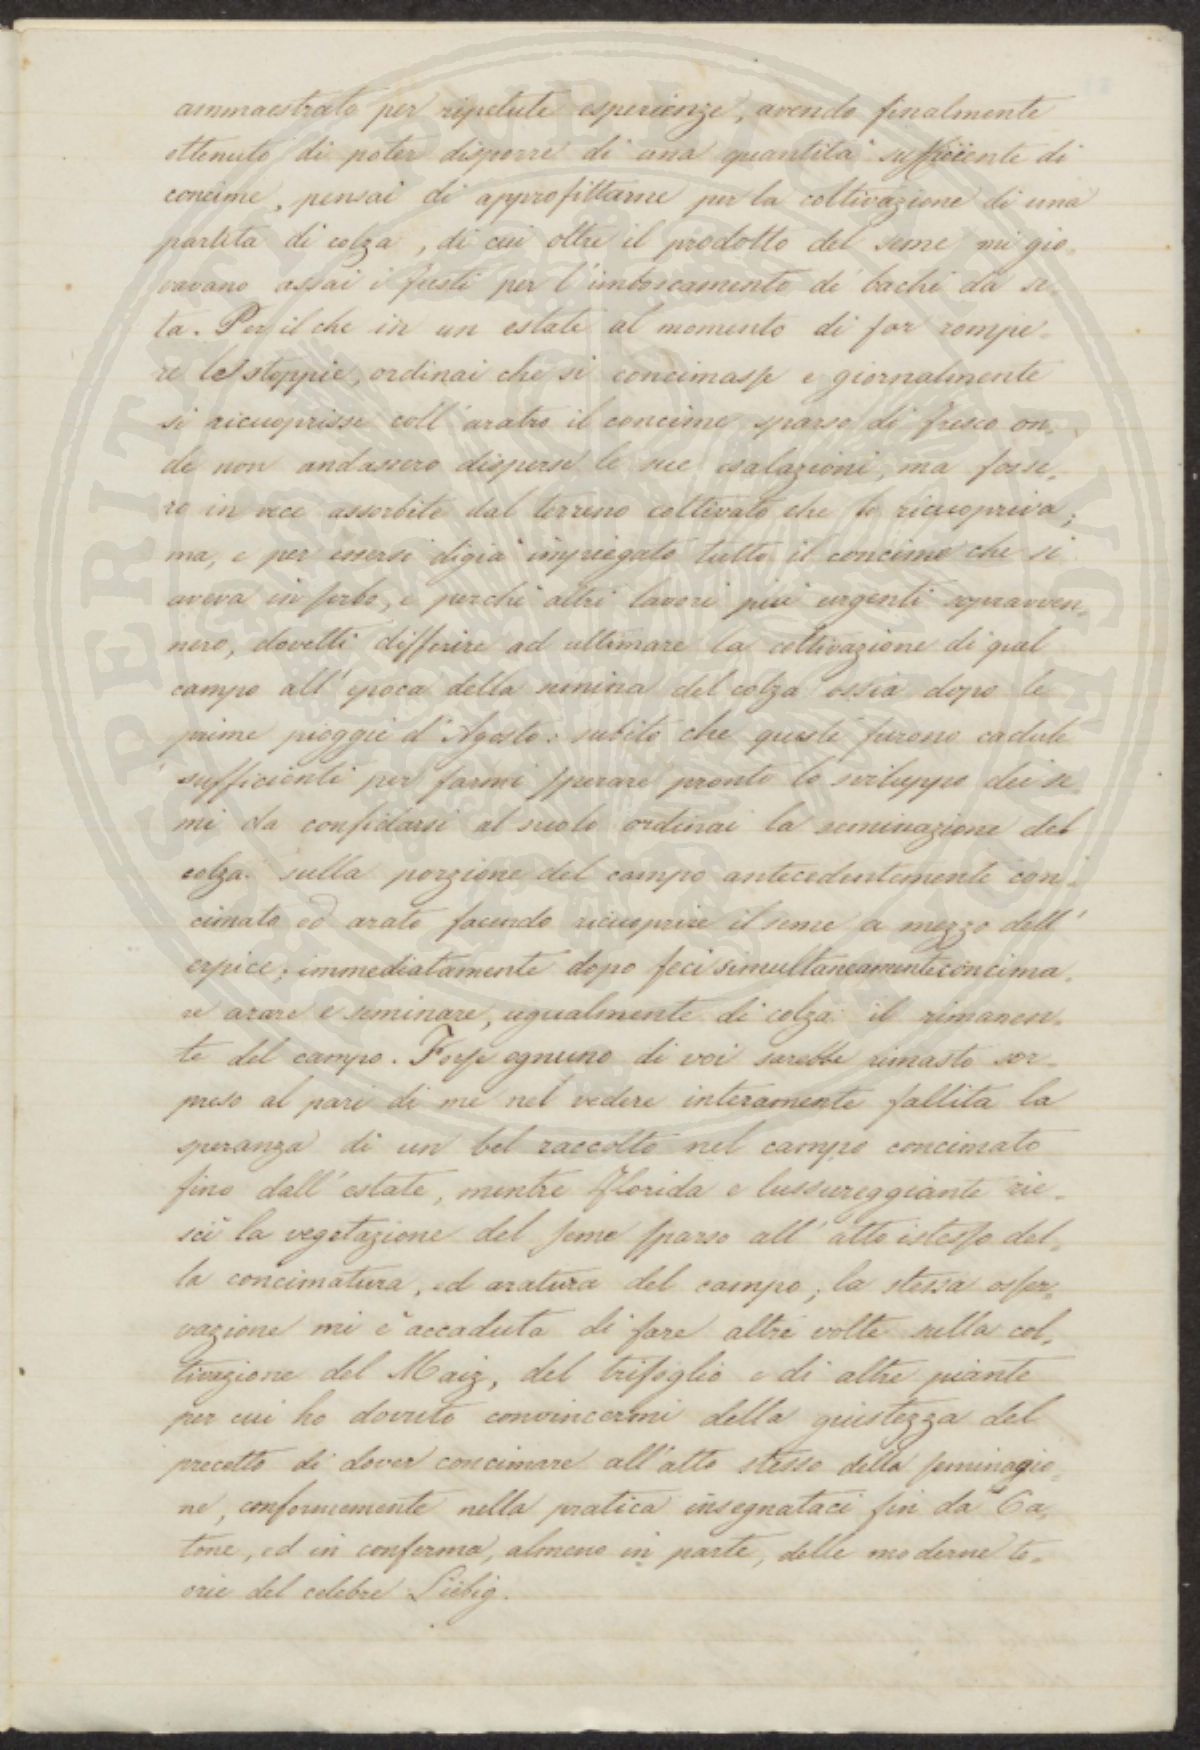 ammaestrato per ripetute esperienze, avendo finalmente
ottenuto di poter disporre di una quantità sufficiente di
concime, pensai di approfittarne per la coltivazione di una
partita di colza, di cui oltre il prodotto del seme mi gio-
vavano assai i fusti per l'imboscamento de' bachi da se-
ta. Per il che in un estate al momento di far rompe-
re le stoppie, ordinai che si concimasse e giornalmente
si ricuoprisse coll'aratro il concime sparso di fresco on-
de non andassero disperse le sue esalazioni, ma fosse-
ro in vece assorbite dal terreno coltivato che lo ricuopriva;
ma, e per essersi digià impiegato tutto il concime che si
aveva in serbo, e perchè altri lavori più urgenti sopravven-
nero, dovetti differire ad ultimare la coltivazione di quel
campo all'epoca della semina del colza ossia dopo le
prime pioggie d'Agosto: subito che queste furono cadute
sufficienti per farmi sperare pronto lo sviluppo dei se-
mi da confidarsi al suolo ordinai la seminazione del
colza sulla porzione del campo antecedentemente con-
cimato ed arato facendo ricuoprire il seme a mezzo dell'
erpice; immediatamente dopo feci simultaneamente concima-
re arare e seminare, ugualmente di colza il rimanen-
te del campo. Forse ognuno di voi sarebbe rimasto sor-
preso al pari di me nel vedere interamente fallita la
speranza di un bel raccolto nel campo concimato
fino dall'estate, mentre florida e lussureggiante rie-
scì la vegetazione del seme sparso all'atto istesso del-
la concimatura, ed aratura del campo; la stessa osser-
vazione mi è accaduta di fare altre volte sulla col-
tivazione del Maiz, del trifoglio e di altre piante
per cui ho dovuto convincermi della giustezza del
precetto di dover concimare all'atto stesso della seminagio-
ne, conformemente nella pratica insegnataci fin da Ca-
tone, ed in conferma, almeno in parte, delle moderne te-
orie del celebre Liebig.